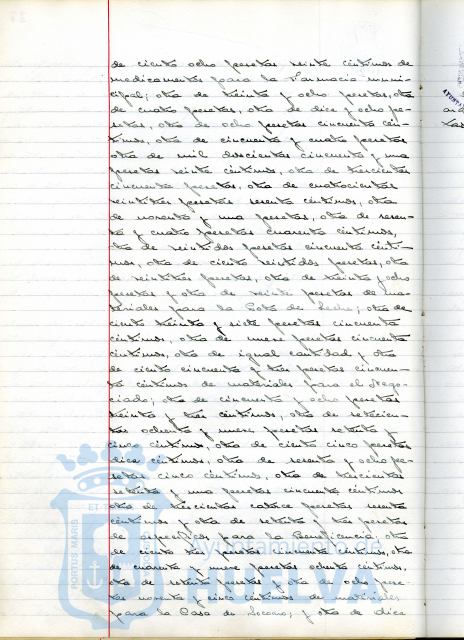 de ciento ocho pesetas veinte centimos de
medicamentos para la Farmacia muni-
cipal; otra de treinta y ocho pesetas, otra
de cuatro pesetas, otra de diez y ocho pe-
setas, otra de ocho pesetas cincuenta cen-
timos, otra de cincuenta y cuatro pesetas,
otra de mil doscientas cincuenta y una
pesetas veinte centimos, otra de trescientas
cincuenta pesetas, otra de cuatrocientas
veintitres pesetas sesenta centimos, otra
de noventa y una pesetas, otra de sesen-
ta y cuatro pesetas cuarenta centimos,
otra de veintidos pesetas cincuenta centi-
mos, otra de ciento veintidos pesetas, otra
de veintitres pesetas, otra de treinta y ocho
pesetas y otra de veinte pesetas de ma-
teriales para la Gota de Leche; otra de
ciento treinta y siete pesetas cincuenta
centimos, otra de nueve pesetas cincuenta
centimos, otra de igual cantidad y otra
de ciento cincuenta y tres pesetas cincuen-
ta centimos de materiales para el Nego-
ciado; otra de cincuenta y ocho pesetas
treinta y tres centimos, otra de setecien-
tas ochenta y nueve pesetas setenta y
cinco centimos, otra de ciento cinco pesetas
diez centimos, otra de sesenta y ocho pe-
setas cinco centimos, otra de trescientas
setenta y una pesetas cincuenta centimos
otra de trescientas catorce pesetas sesenta
centimos y otra de setenta y tres pesetas
de especificos para la Beneficencia, otra
de ciento tres pesetas noventa centimos, otra
de cuarenta y nueve pesetas ochenta centimos,
otra de setenta pesetas y otra de ocho pese-
tas noventa y cinco centimos de materiales
para la Casa de Socorro; y otra de diez
PORTUS MARIS
ET TE
Ayuntamiento de
HUELVA